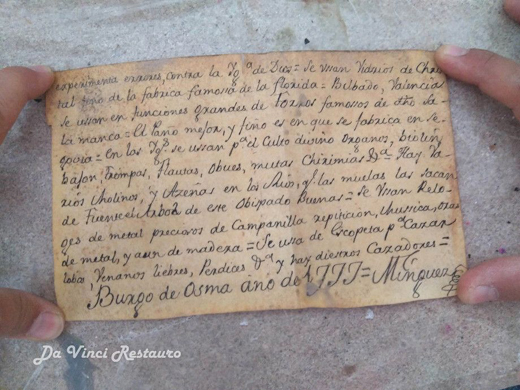 experimenta errores, contra la Yg.ª de Dios = Se ussan Vidrios de Chris
tal fino de la fabrica famosa de la florida = Bilbado, Valencia
se ussan en funciones grandes de toros famosos de dho Sa-
lamanca = El paño mejor, y fino es en que se fabrica en Se-
govia = en las Yg.ˢ se ussan p.ª el Culto divino Organos, biolin,
bajon, trompas, flautas, Obues, mutas Chirimias &.ª = Hay va-
rios Molinos, y Azeñas en los Rios, q.ᵉ las muelas las sacan
de Fuentelarbol de este Obispado Buenas = Se Vssan Relo-
ges de metal preciosos de Campanilla repiticion, Mussica, otros
de metal, y aun de madera = Se usa de Escopeta p.ª Cazar
lobos, Venados liebres, Perdices &.ª y hay diestros Cazadores =
Burgo de Osma año de 1777 = Minguez
Da Vinci Restauro